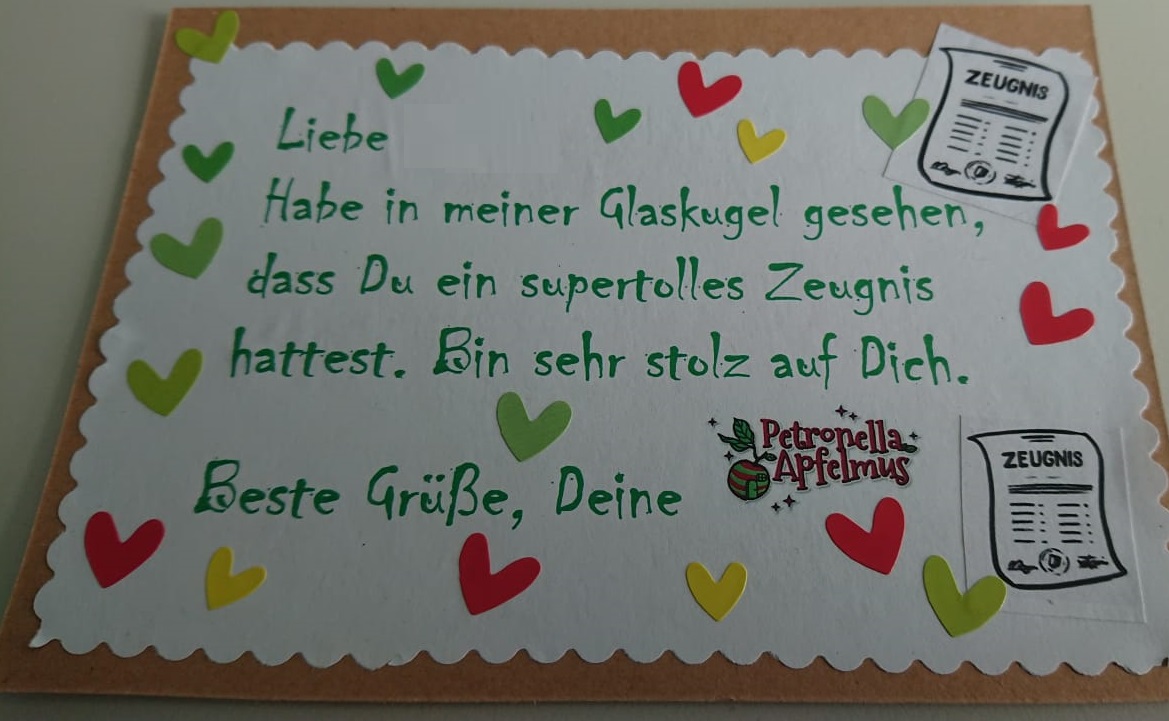 ZEUGNIS
Liebe
Habe in meiner Glaskugel gesehen,
dass Du ein supertolles Zeugnis
hattest. Bin sehr stolz auf Dich.
Petronella
Apfelmus
Beste Grüße, Deine
ZEUGNIS